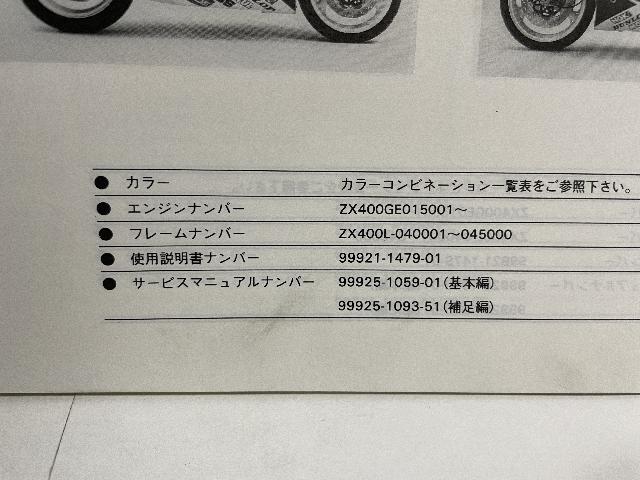 ● カラー カラーコンビネーション一覧表をご参照下さい。
● エンジンナンバー ZX400GE015001〜
● フレームナンバー ZX400L-040001〜045000
● 使用説明書ナンバー 99921-1479-01
● サービスマニュアルナンバー 99925-1059-01(基本編)
99925-1093-51(補足編)